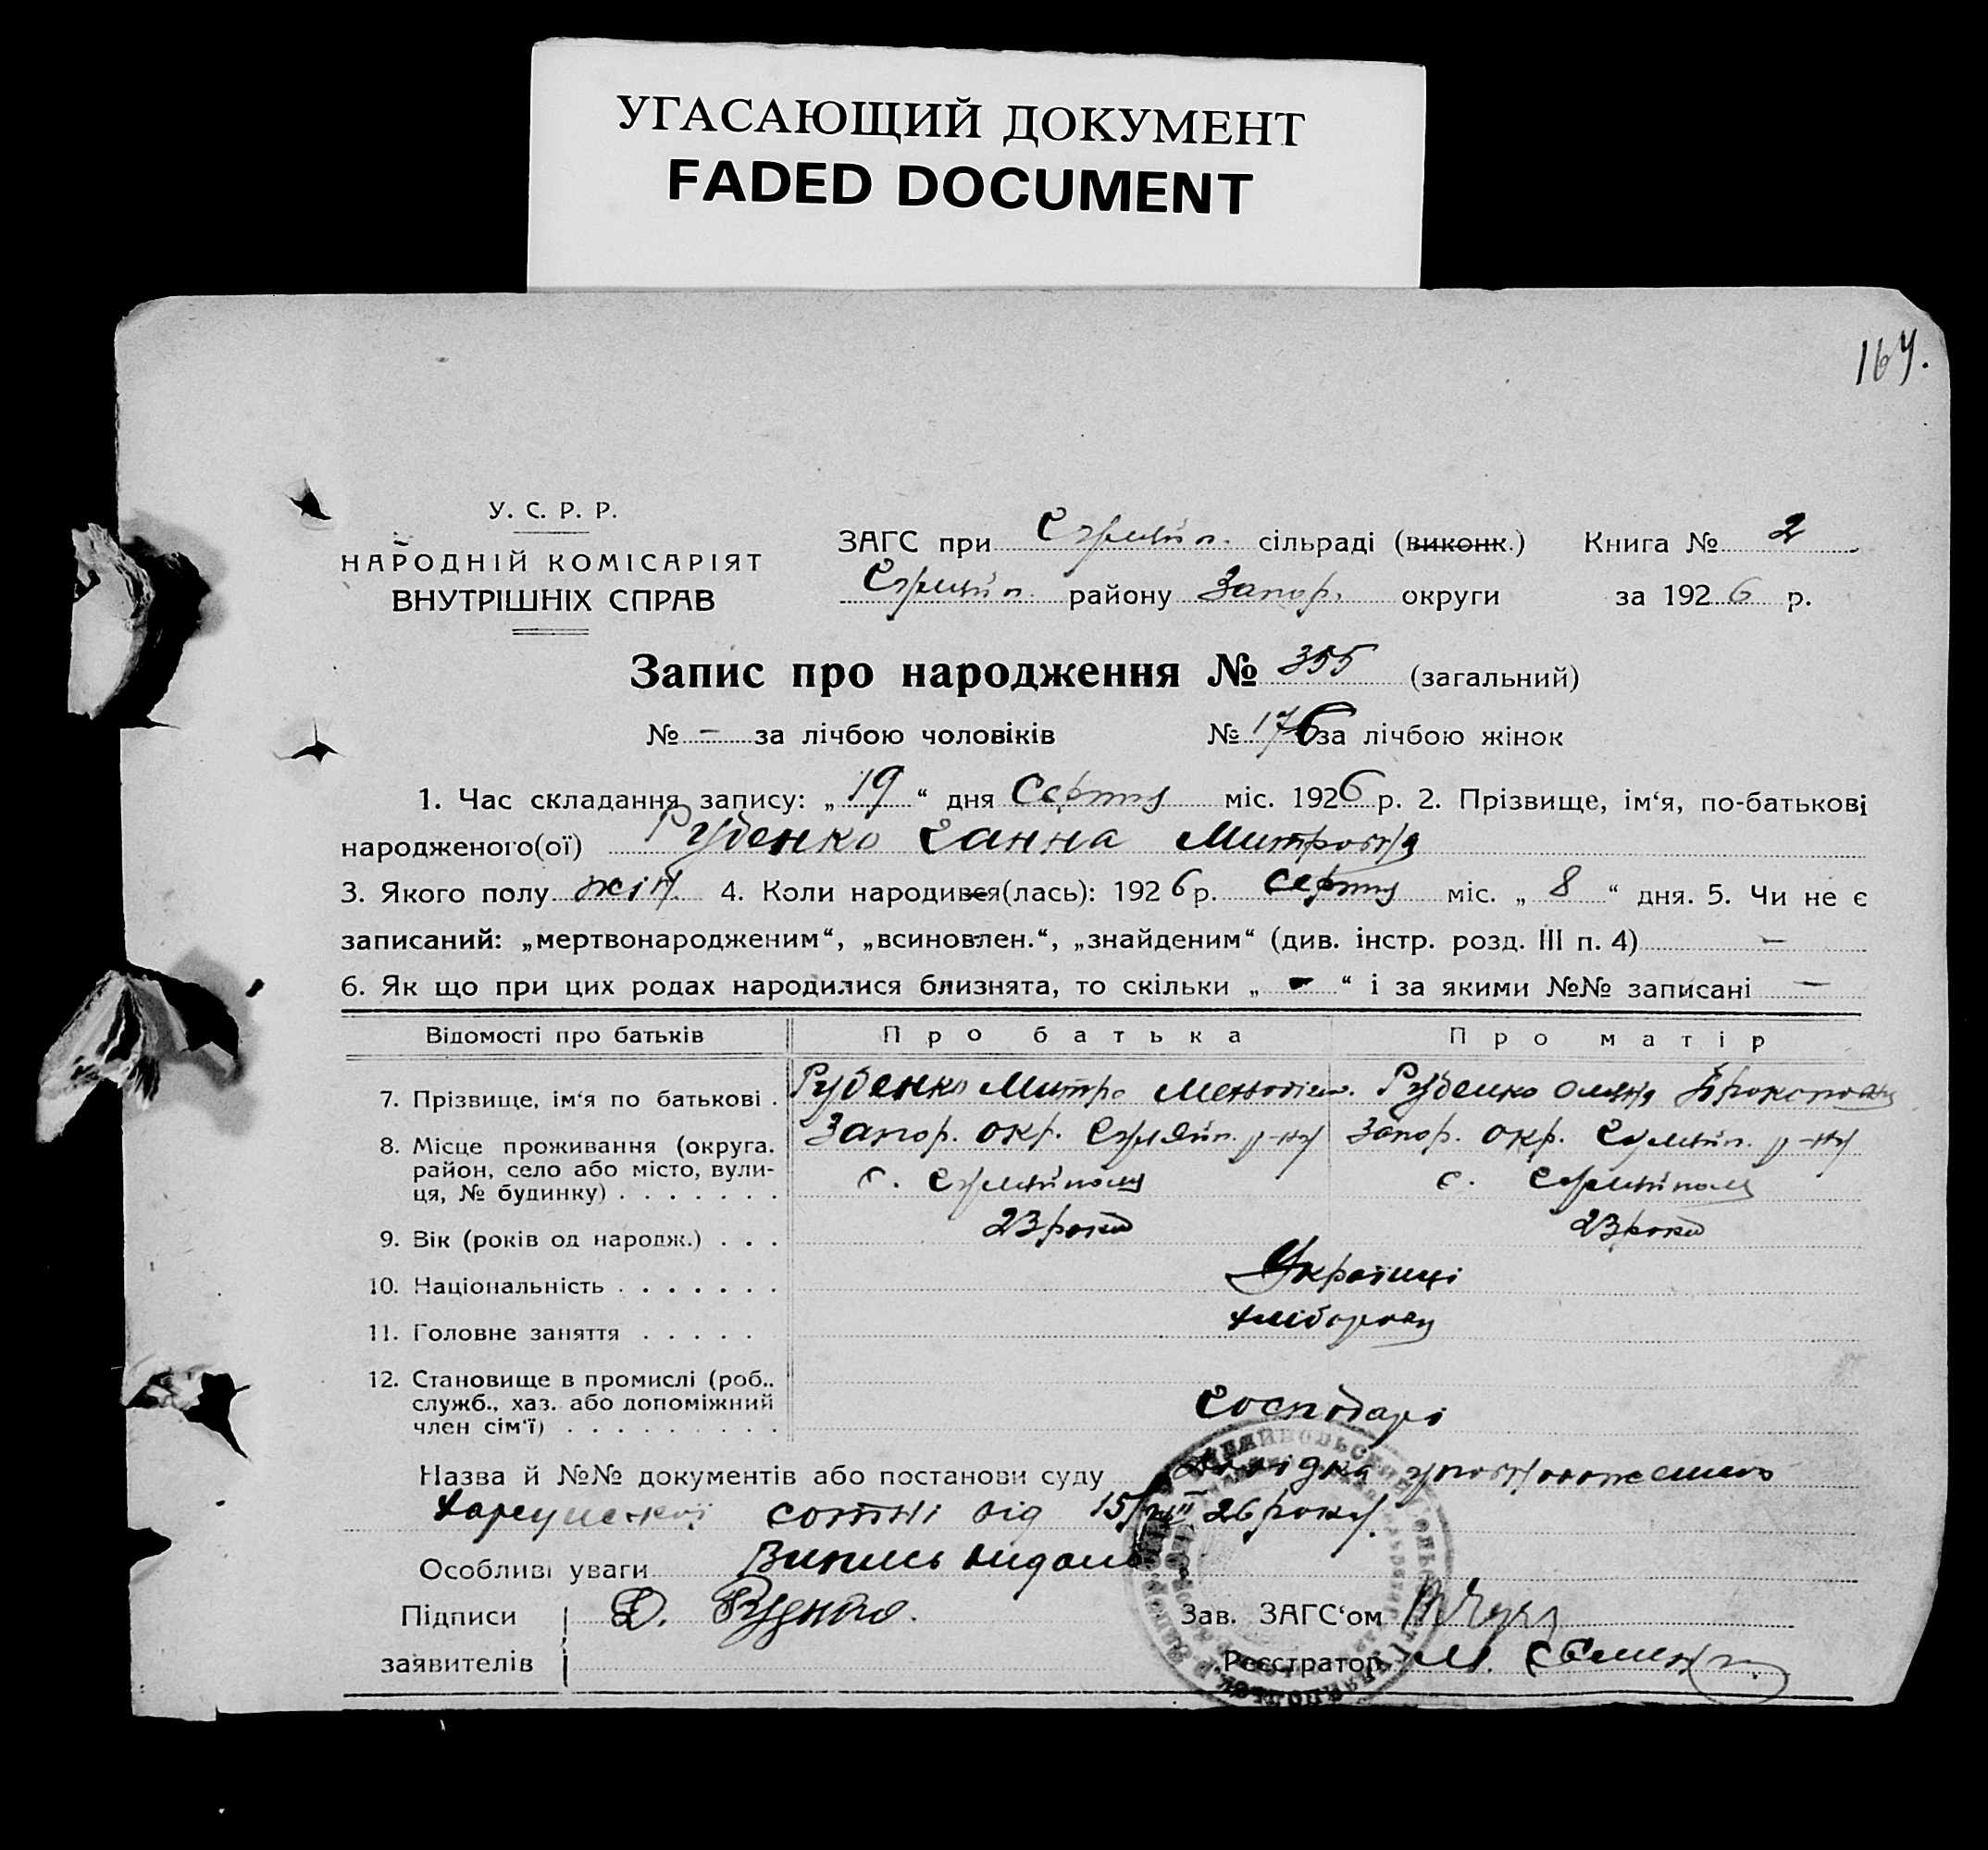 УГАСАЮЩИЙ ДОКУМЕНТ
FADED DOCUMENT
164.
У. С. Р. Р.
НАРОДНІЙ КОМІСАРІЯТ
ВНУТРІШНІХ СПРАВ
ЗАГС при Гуляйп. сільраді (виконк.) Книга № 2
Гуляйп. району Запор. округи за 1926 р.
Запис про народження № 355 (загальний)
№ – за лічбою чоловіків № 176 за лічбою жінок
1. Час складання запису: „19“ дня Серпня міс. 1926 р. 2. Прізвище, ім‘я, по-батькові
народженого(ої) Рубенко Ганна Митровна
3. Якого полу жін. 4. Коли народився(лась): 1926 р. серпня міс. „8“ дня. 5. Чи не є
записаний: „мертвонародженим“, „всиновлен.“, „знайденим“ (див. інстр. розд. III п. 4) –
6. Як що при цих родах народилися близнята, то скільки „–“ і за якими №№ записані –
Відомості про батьків Про батька Про матір
7. Прізвище, ім‘я по батькові . Рубенко Митро Рубенко Прокоповна
8. Місце проживання (округа. Запор. окр. Гуляйп. р-ну Запор. окр. Гуляйп. р-ну
район, село або місто, вули- с. Гуляйполе с. Гуляйполе
ця, № будинку) . . . . . . .
9. Вік (років од народж.) . . . 23 роки 23 роки
10. Національність . . . . . . . Українці
11. Головне заняття . . . . . хлібороби
12. Становище в промислі (роб..
служб., хаз. або допоміжний
член сім‘ї) . . . . . . . . . Господарі
Назва й №№ документів або постанови суду Довідка уповноваженого
сотні від 15/VIII 26 року.
Особливі уваги Випись видано
Підписи Д. Зав. ЗАГС‘ом
заявителів Реєстратор М.